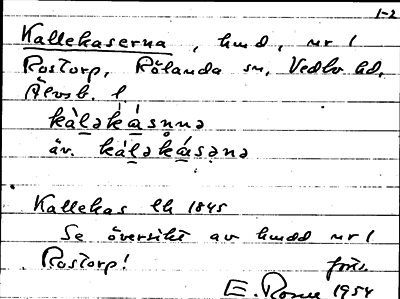 1-2
Kallekaserna, hmd, nr 1
Rostorp, Rölanda sn, Vedbo hd,
Älvsb. l
kàləkásnnə
äv. kàləkásənə
Kallekas lk 1845
Se översikt av hmdd nr 1
Rostorp! forts.
E. 1954